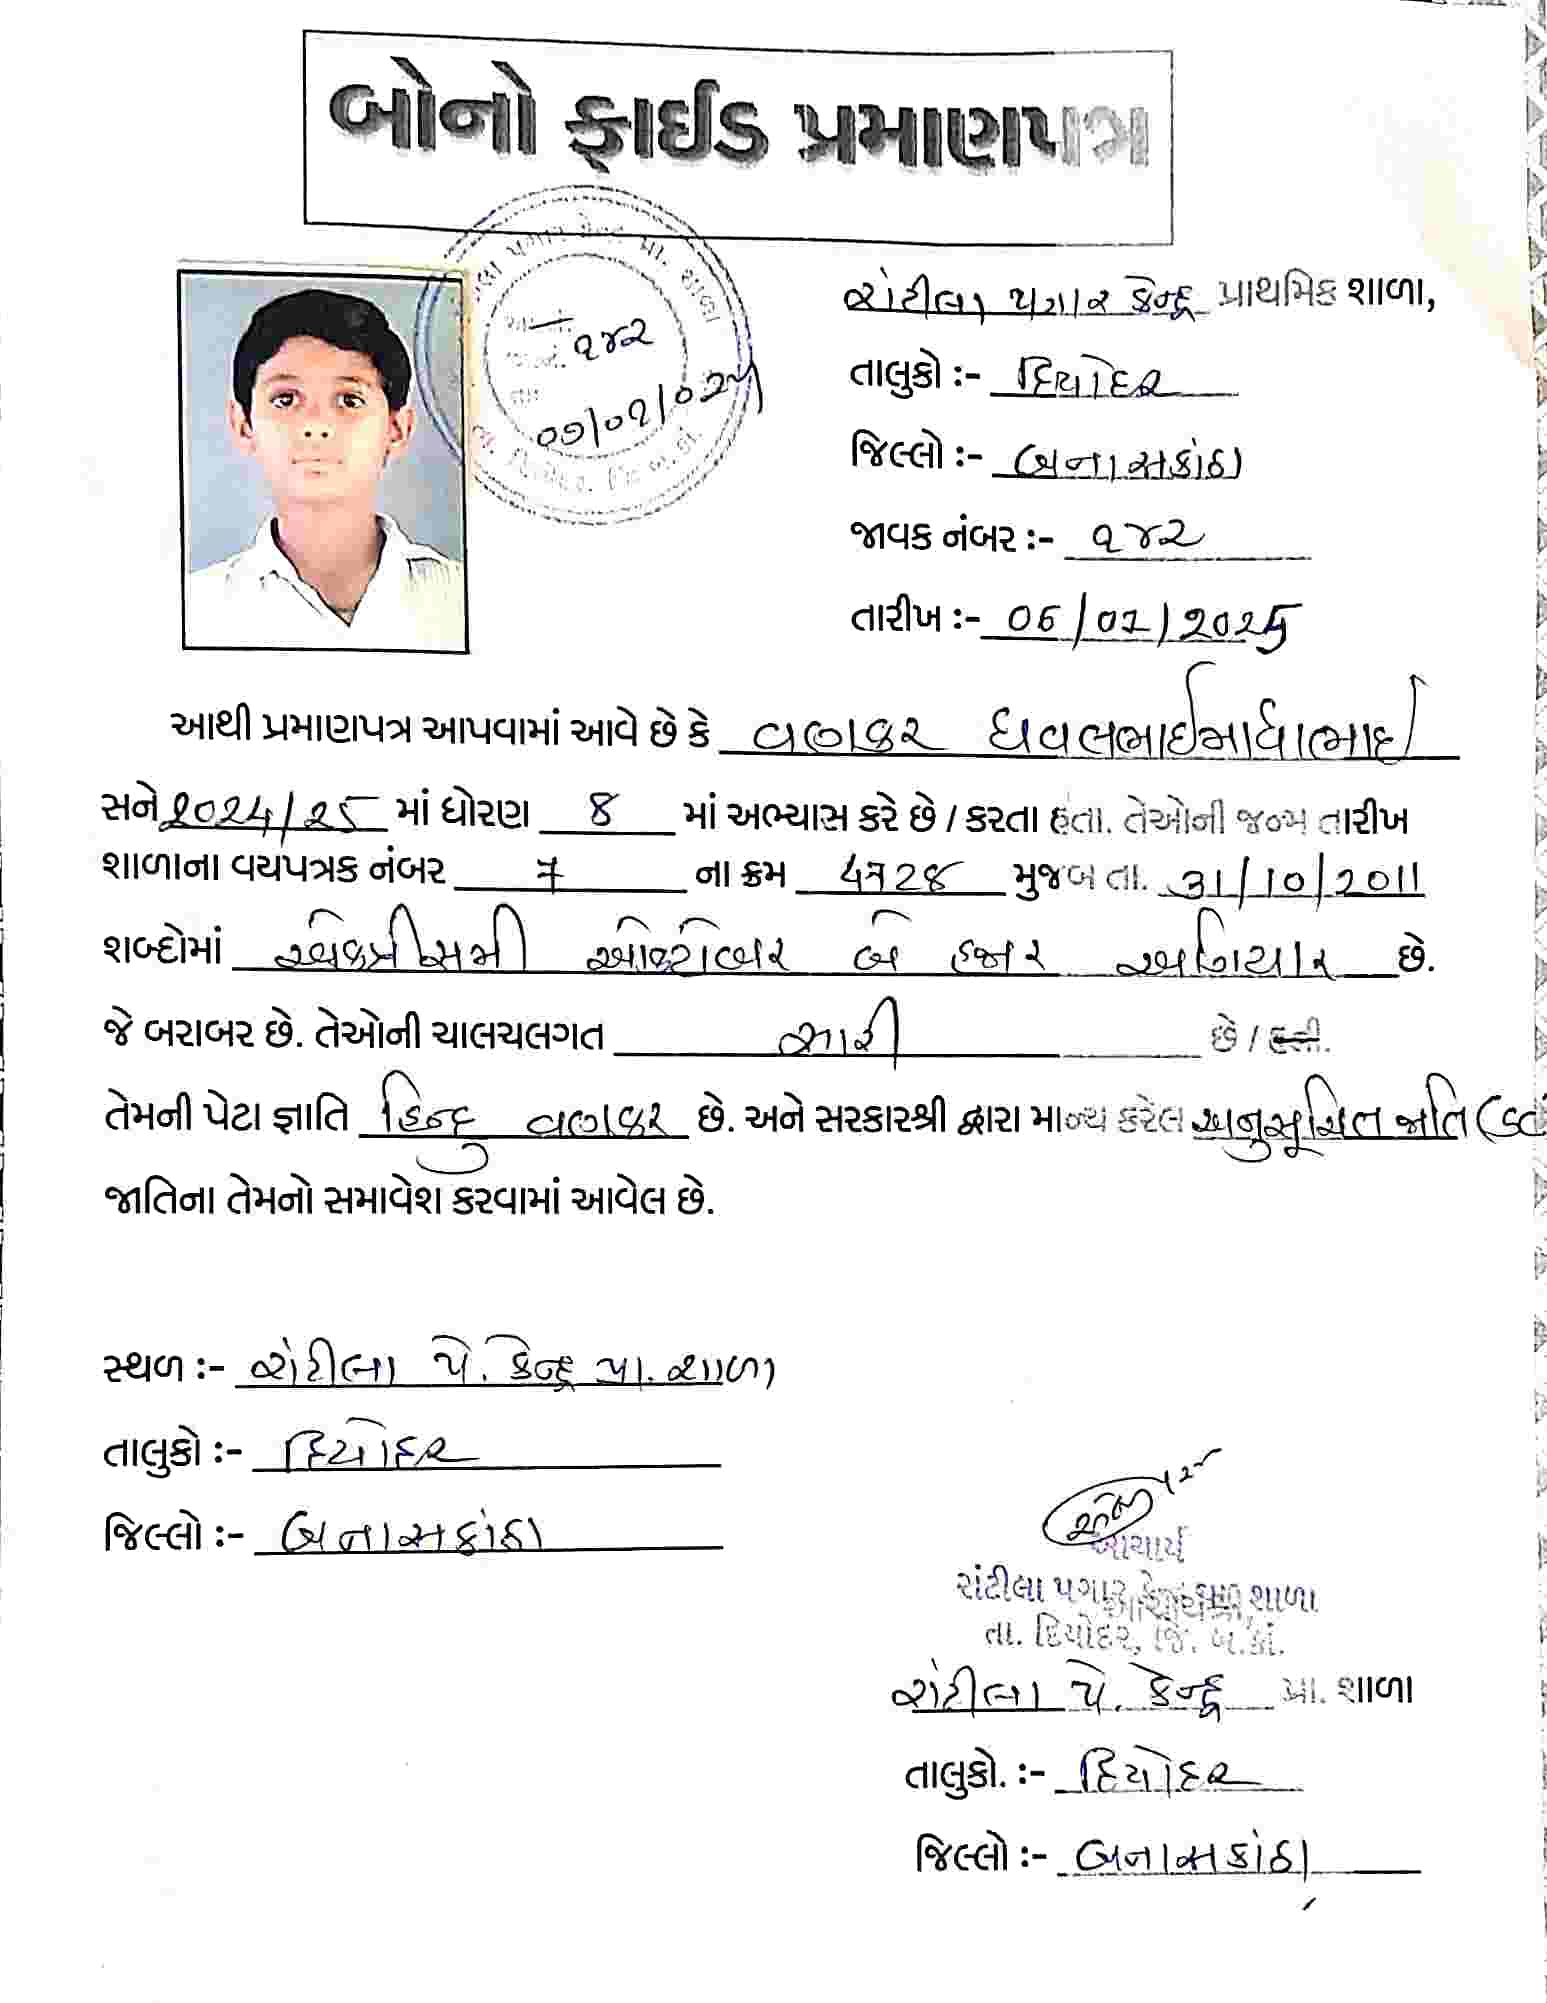 બોનો ફાઈડ પ્રમાણપત્ર
રાંટીલા પગાર કેન્દ્ર પ્રાથમિક શાળા,
તાલુકો :- દિયોદર
જિલ્લો :- બનાસકાંઠા
જાવક નંબર :- ૧૪૨
તારીખ :- 06/01/2025
પગાર કેન્દ્ર પ્રા. શાળા
૧૪૨
તા. દિયોદર, જિ. બ.કાં.
આથી પ્રમાણપત્ર આપવામાં આવે છે કે વણકર ધવલભાઈ માધાભાઈ
સને 2024/25 માં ધોરણ 8 માં અભ્યાસ કરે છે / કરતા હતા. તેઓની જન્મ તારીખ
શાળાના વયપત્રક નંબર 7 ના ક્રમ 4728 મુજબ તા. 31/10/2011
શબ્દોમાં એકત્રીસમી ઓક્ટોબર બે હજાર અગિયાર છે.
જે બરાબર છે. તેઓની ચાલચલગત સારી છે / હતી.
તેમની પેટા જ્ઞાતિ હિન્દુ વણકર છે. અને સરકારશ્રી દ્વારા માન્ય કરેલ અનુસૂચિત જાતિ
જાતિના તેમનો સમાવેશ કરવામાં આવેલ છે.
સ્થળ :- રાંટીલા પે. કેન્દ્ર પ્રા. શાળા
તાલુકો :- દિયોદર
જિલ્લો :- બનાસકાંઠા
આચાર્ય
રાંટીલા પગાર કેન્દ્ર શાળા
તા. દિયોદર, જિ. બ.કાં.
રાંટીલા પે. કેન્દ્ર પ્રા. શાળા
તાલુકો. :- દિયોદર
જિલ્લો :- બનાસકાંઠા